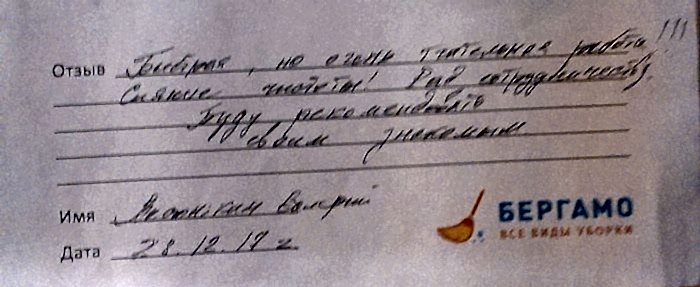 Отзыв Быстрая, но очень тщательная работа!!!
Сияние чистоты! Рад сотрудничеству.
Буду рекомендовать
своим знакомым
Имя Валерий
БЕРГАМО
ВСЕ ВИДЫ УБОРКИ
Дата 28.12.17 г.